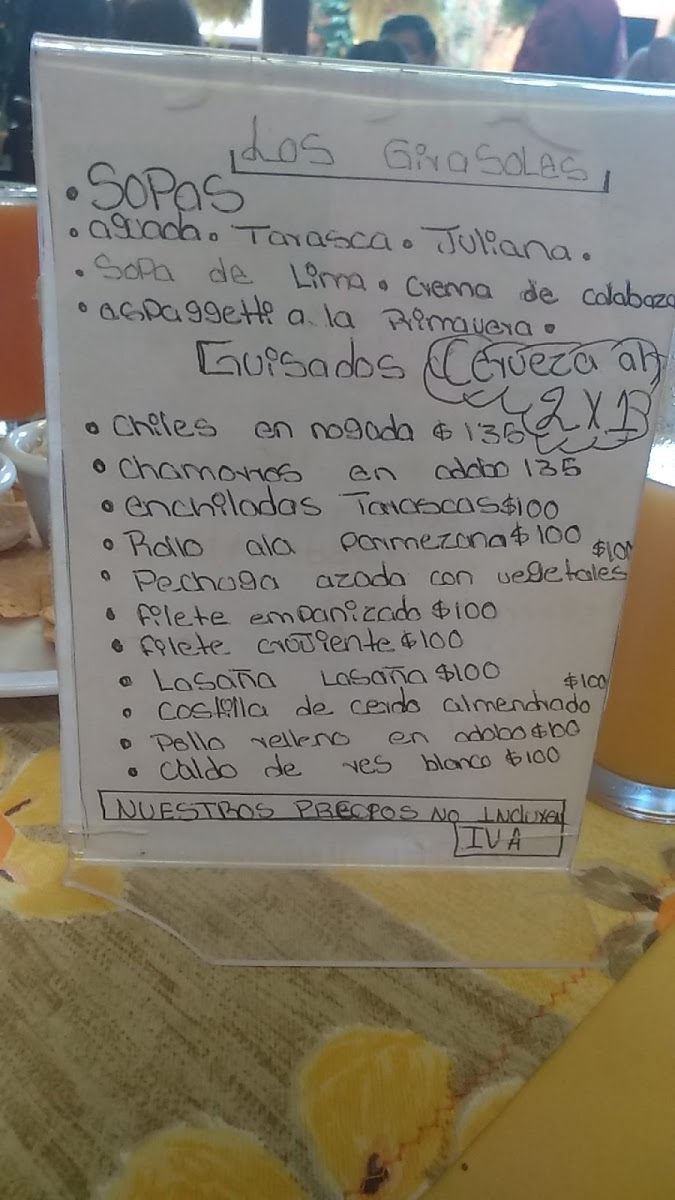 Los Girasoles
• SOPAS
• aguada. Tarasca. Juliana.
• Sopa de Lima. Crema de calabaza
• aspaggetti a la Primavera.
Guisados Cerveza al
2 X 1
• chiles en nogada $135
• chamorros en adobo 135
• enchiladas Tarascas $100
• Rollo ala parmezana $100
• Pechuga azada con vegetales $100
• filete empanizado $100
• filete crojiente $100
• Lasaña Lasaña $100
• costilla de cerdo almendrado $100
• Pollo relleno en adobo $100
• Caldo de res blanco $100
NUESTROS PRECIOS NO INCLUYEN
IVA